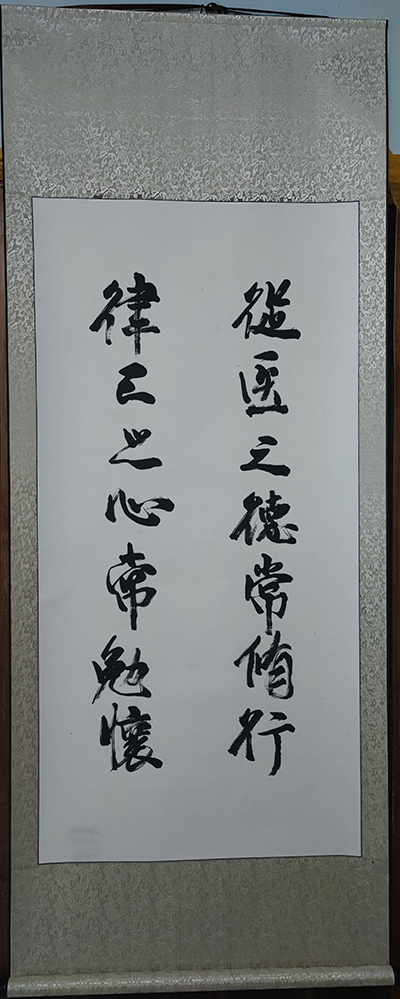 從医之德常脩行
律己之心常勉懷